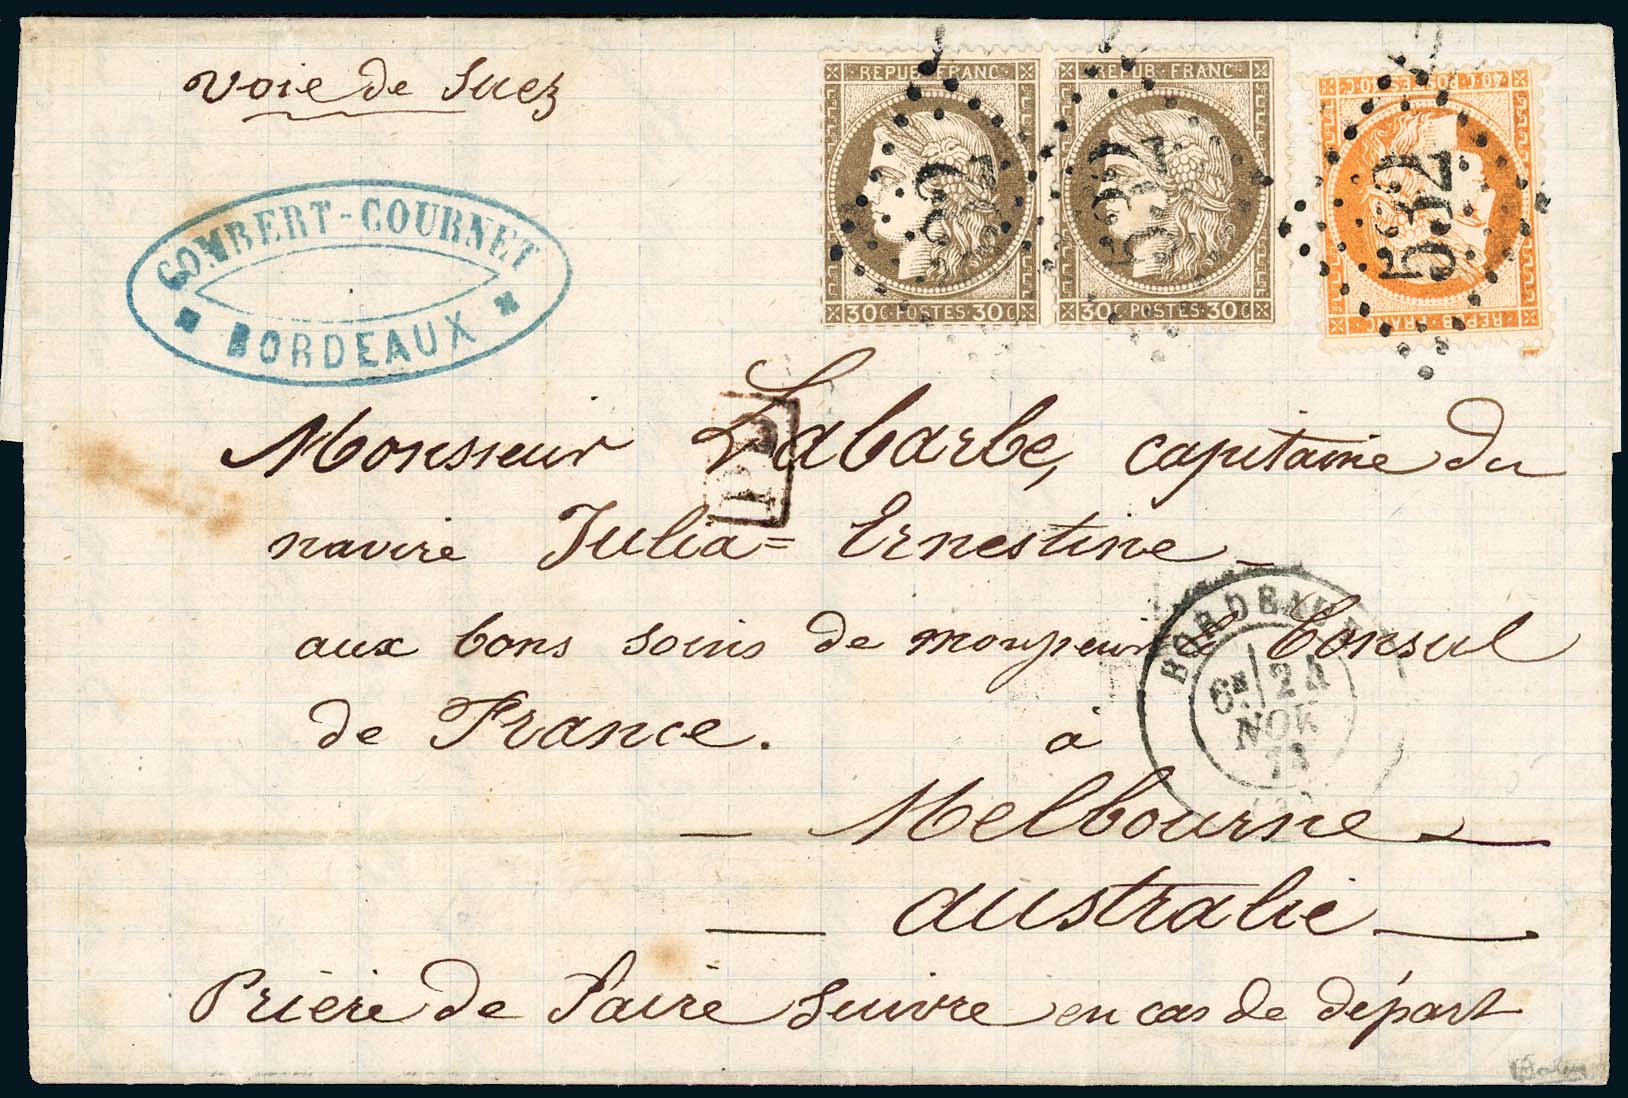 voie de Suez
REPUB·FRANC
30C·POSTES·30C
REPUB·FRANC
30C·POSTES·30C
40C·POSTES·40C
REPUB·FRANC
532
532
532
GOMBERT-COURNET
BORDEAUX
PD
Monsieur Labarbe, capitaine du
navire Julia=Ernestine
aux bons soins de monsieur le Consul
de France. à
Melbourne
australie
Prière de faire suivre en cas de départ
BORDEAUX
6E 24
NOV
73